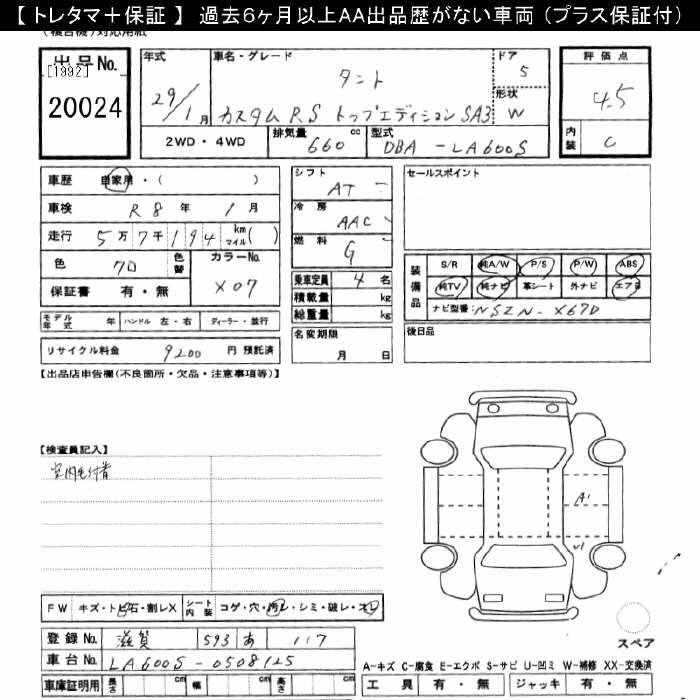 【 トレタマ＋保証 】 過去６ヶ月以上ＡＡ出品歴がない車両 （プラス保証付）
(複合機)対応用紙
出品No.
[1992]
20024
年式
29/1月
車名・グレード
タント
カスタムRS トップエディションSA3
ドア
5
形状
W
2WD・4WD
排気量
660 cc
型式
DBA-LA600S
評価点
4.5
内装
C
車歴 自家用・( )
車検 R8年 1月
走行 5万7千194 km マイル( )
色 クロ 色替
カラーNo.
X07
保証書 有・無
モデル年式 年 ハンドル 左・右 ディーラー・並行
リサイクル料金 9200 円 預託済
シフト
AT
冷房
AAC
燃料
G
乗車定員 4 名
積載量 kg
総重量 kg
名変期限
月 日
セールスポイント
装備品
S/R 純A/W P/S P/W ABS
純TV 純ナビ 革シート 外ナビ エアB
ナビ型番: NSZN-X67D
後日品
【出品店申告欄(不良箇所・欠品・注意事項等)】
【検査員記入】
室内毛付着
A1
FW キズ・トビ石・割レX シート内装 コゲ・穴・汚レ・シミ・破レ・スレ
登録No. 滋賀 593 あ 117
車台No. LA600S-0508125
車庫証明用 長さ cm 幅 cm 高さ cm
スペア
A-キズ C-腐食 E-エクボ S-サビ U-凹ミ W-補修 XX-交換済
工具 有・無 ジャッキ 有・無